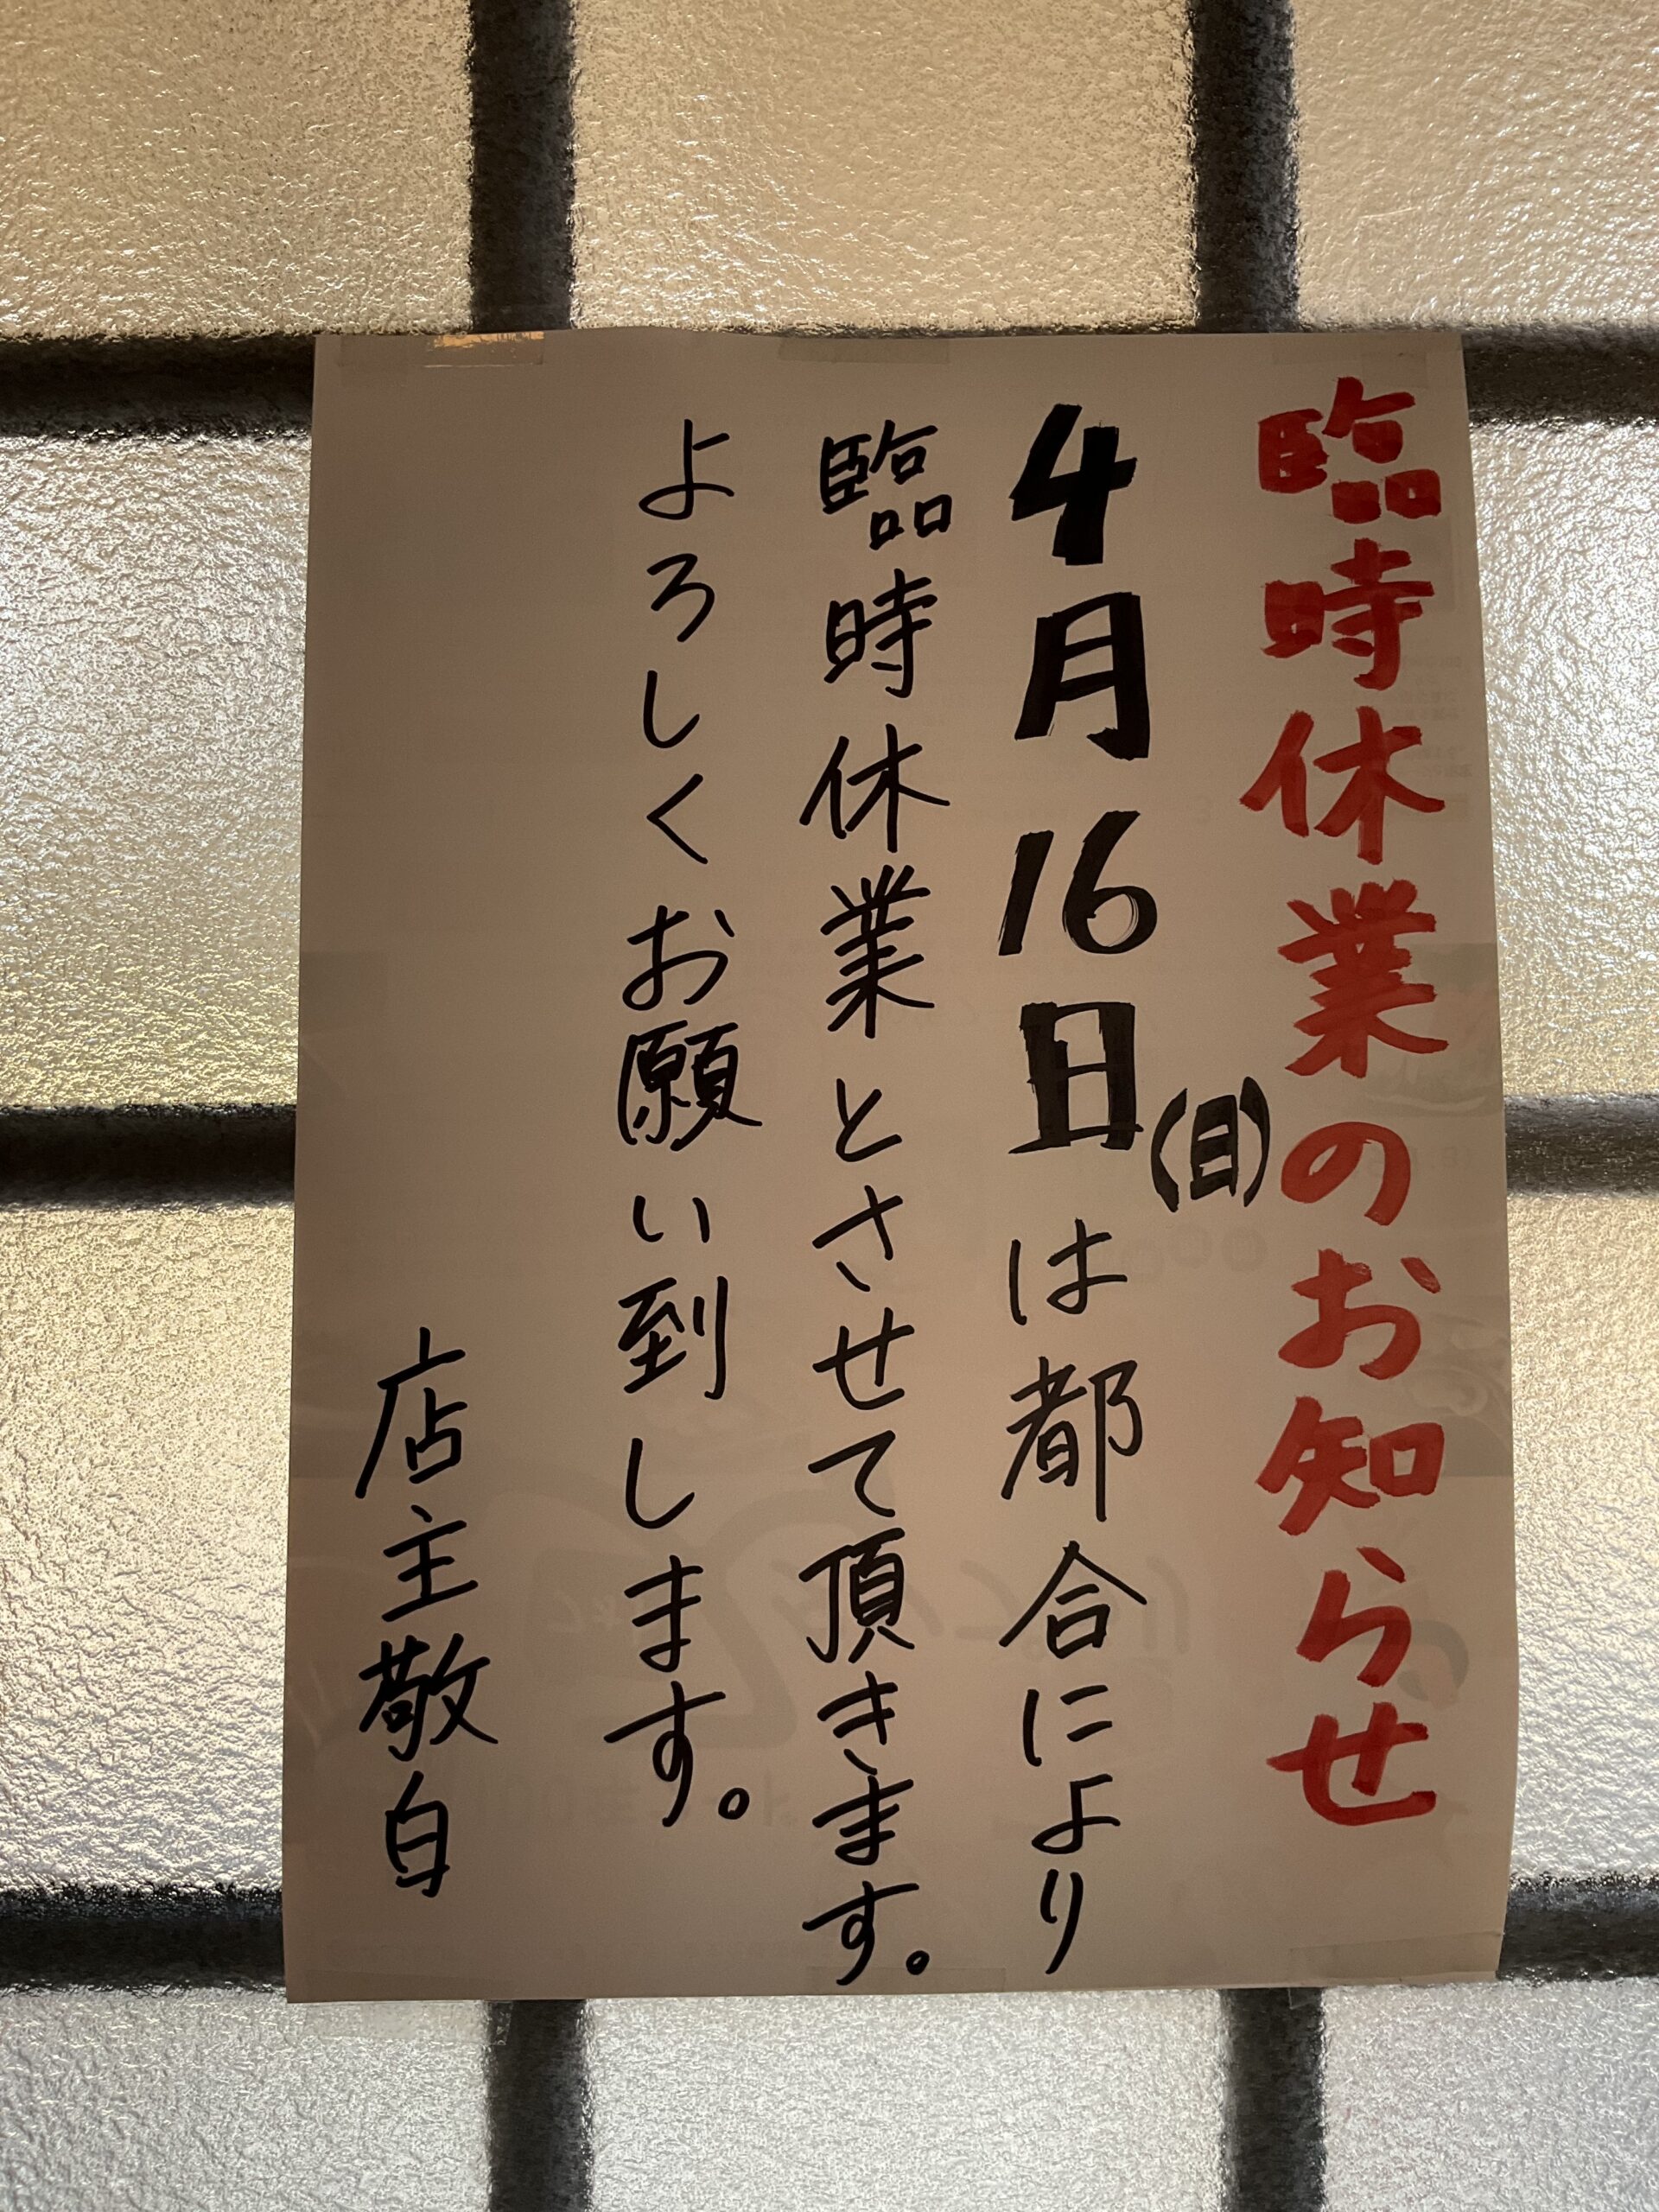 臨時休業のお知らせ
4月16日(日)は都合により
臨時休業とさせて頂きます。
よろしくお願い到します。
店主敬白